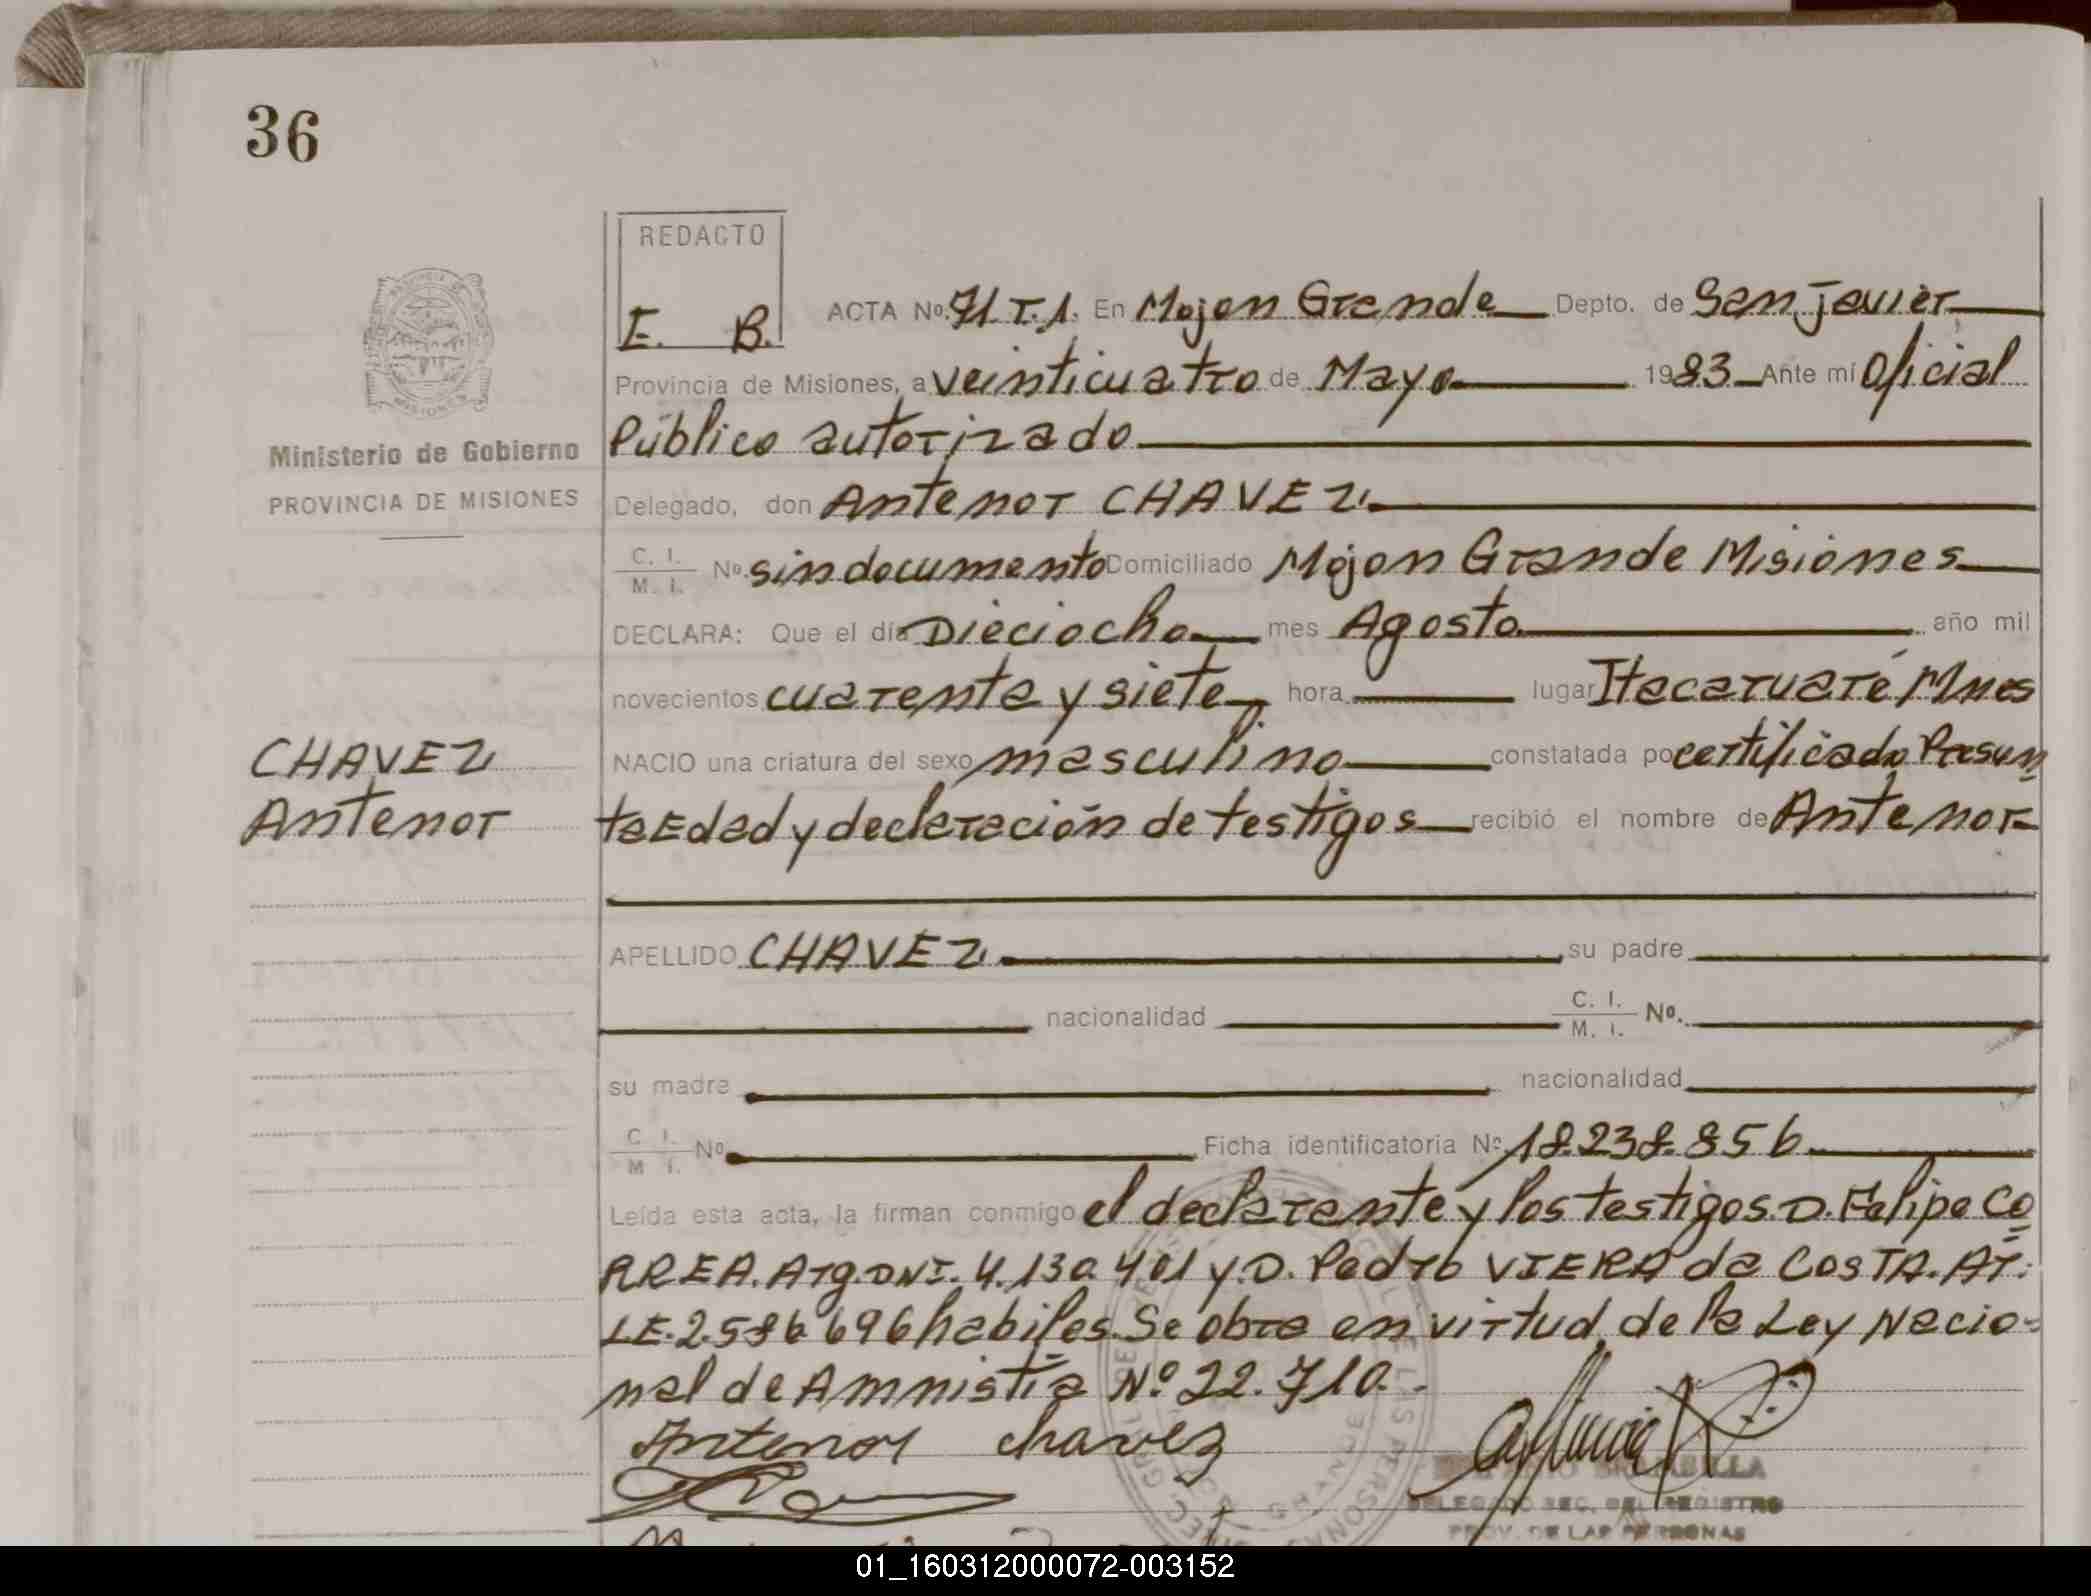 36
REDACTO
E. B.
ACTA Nº 71 T.1. En Mojon Grande Depto. de San Javier
Provincia de Misiones, a veinticuatro de Mayo 1983 Ante mí Oficial
Público autorizado
Ministerio de Gobierno
PROVINCIA DE MISIONES
Delegado, don Antenor CHAVEZ
C. I. / M. I. Nº sin documento Domiciliado Mojon Grande Misiones
DECLARA: Que el día Dieciocho mes Agosto año mil
novecientos cuarenta y siete hora lugar Itacaruaré Mnes
CHAVEZ
Antenor
NACIO una criatura del sexo masculino constatada po certificado Presun
ta Edad y declaración de testigos recibió el nombre de Antenor
APELLIDO CHAVEZ su padre
nacionalidad C. I. / M. I. Nº.
su madre nacionalidad
C. I. / M. I. Nº Ficha identificatoria Nº 18.238.856
Leída esta acta, la firman conmigo el declarante y los testigos. D. Felipe Co
RREA. Arg. DNI. 4.130.401 y D. Pedro VIERA da COSTA. Ar.
LE. 2.586.696 habiles. Se obra en virtud de la Ley Nacio-
nal de Amnistía Nº 22.710.
Antenor Chavez
DELEGADO SEC. DEL REGISTRO
PROV. DE LAS PERSONAS
01_160312000072-003152